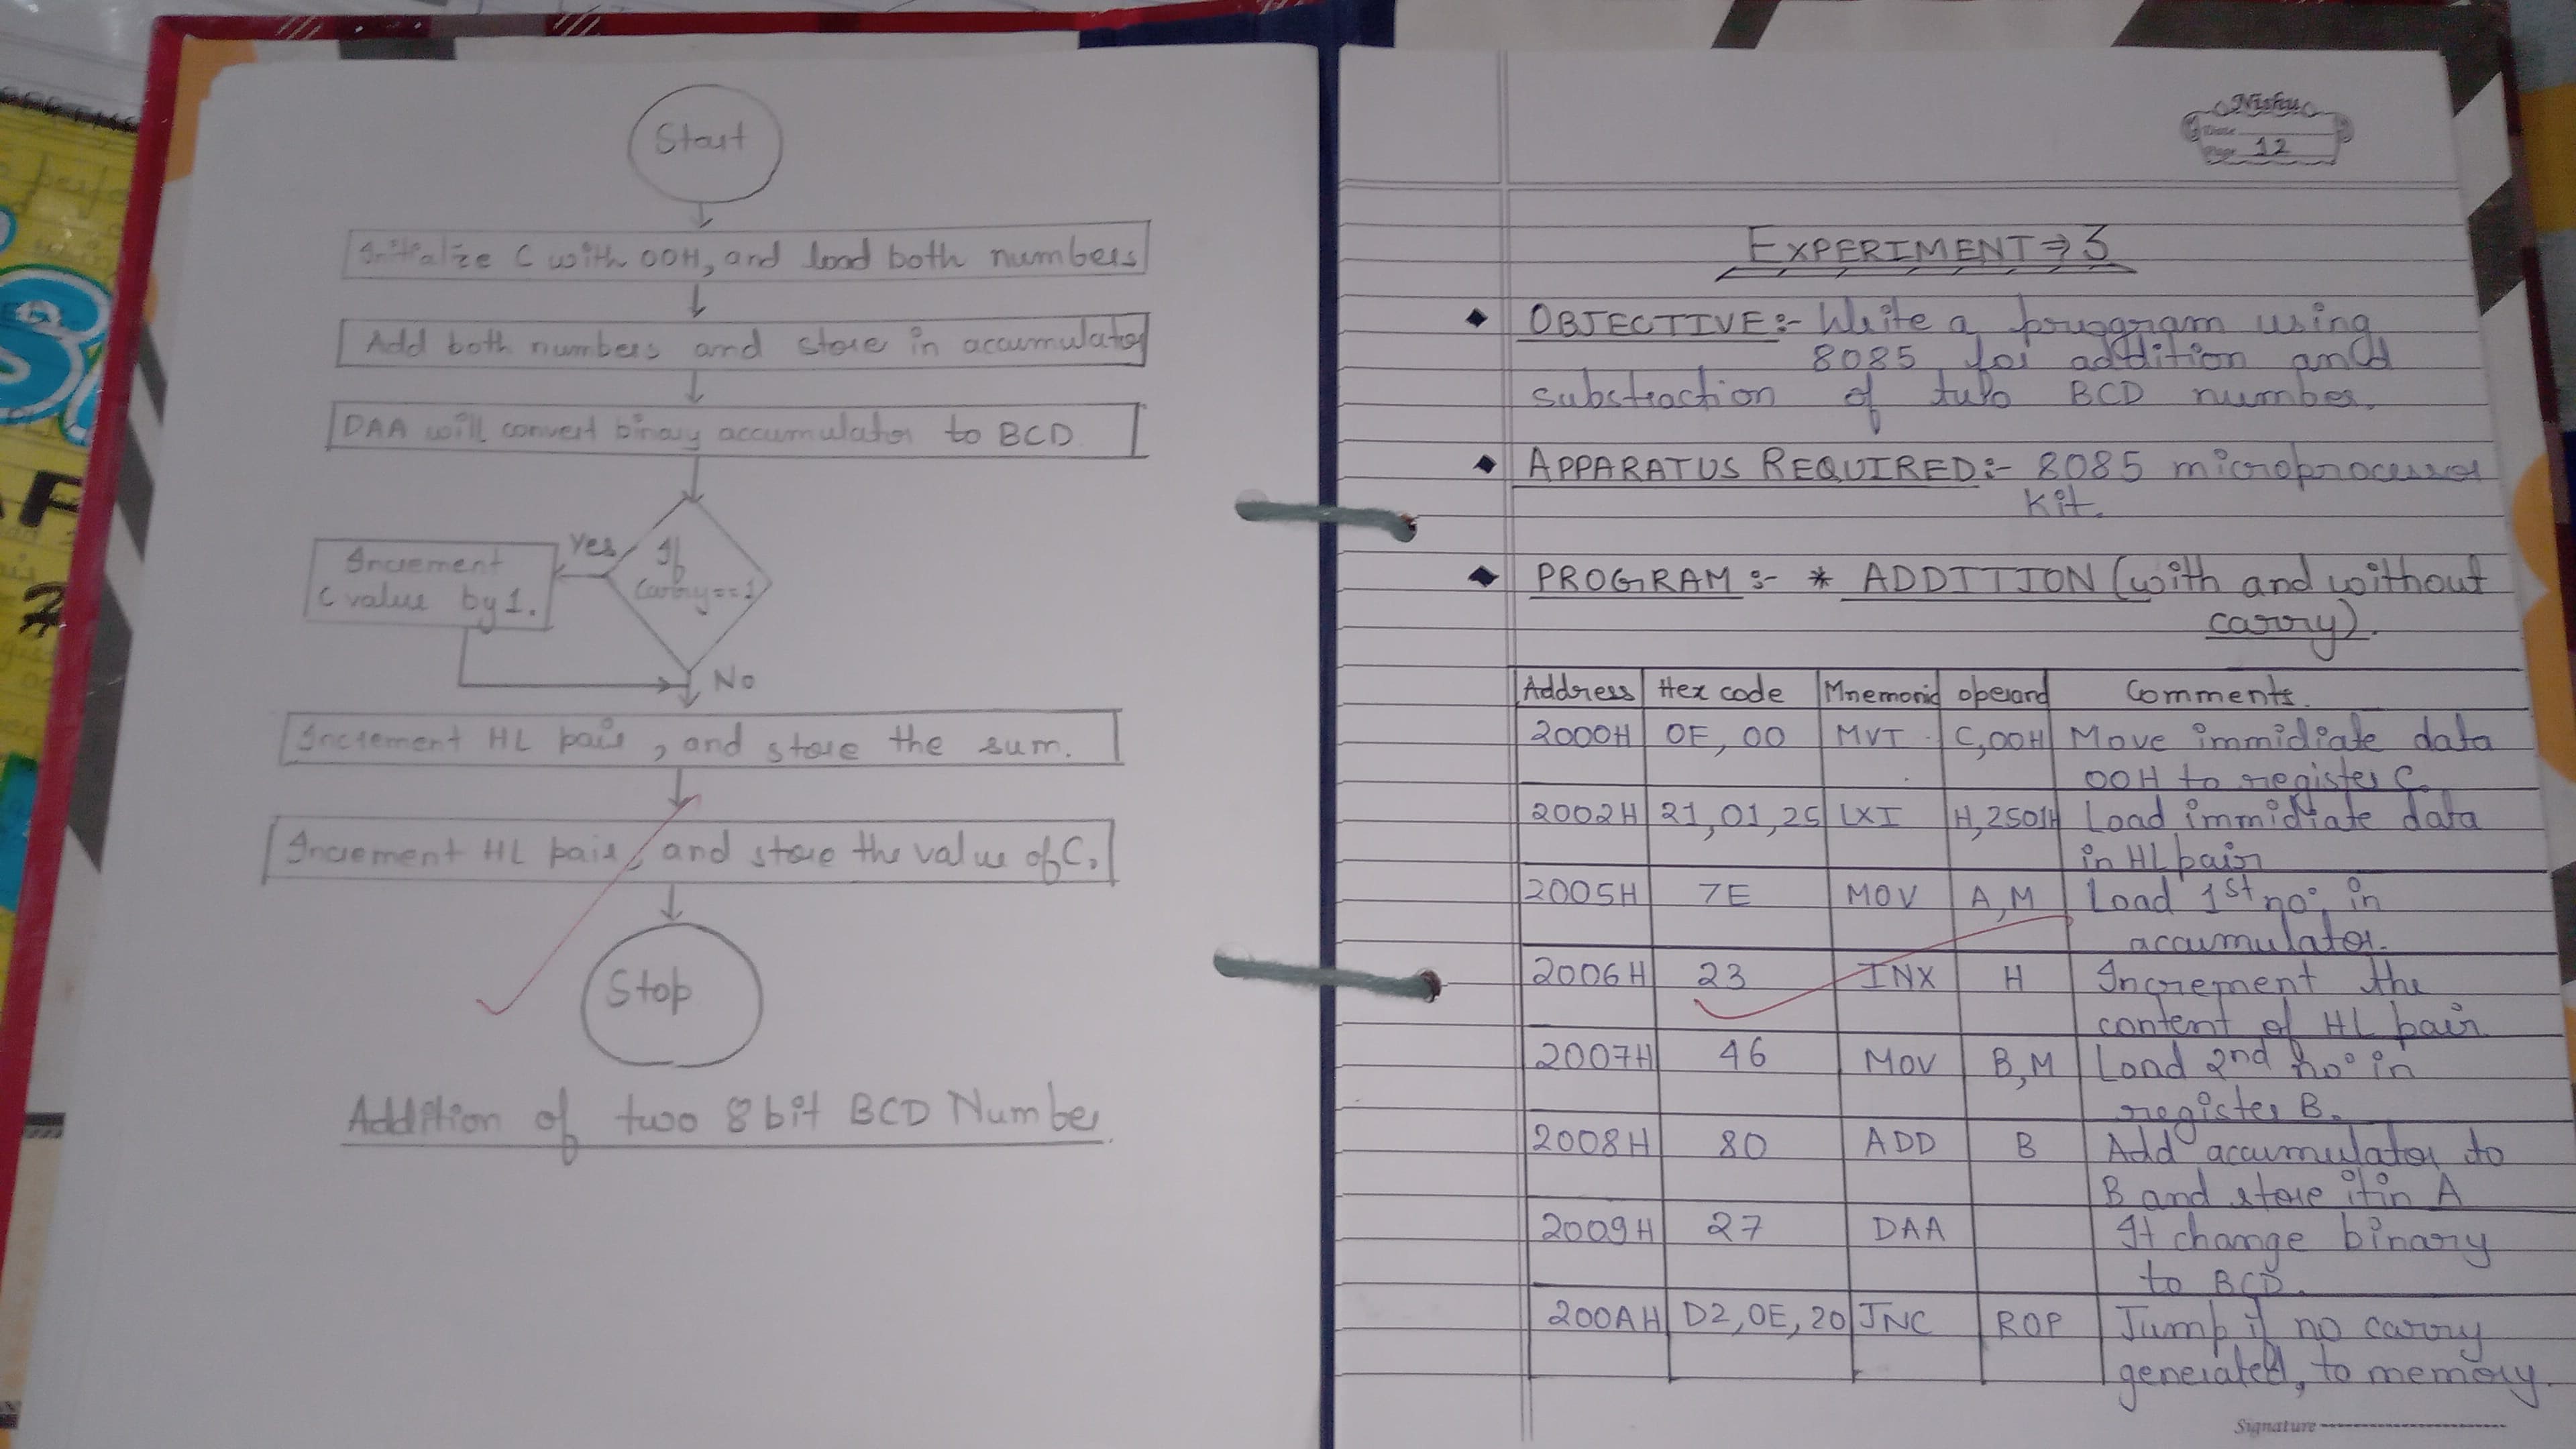 Start
Initialize C with 00H, and load both numbers
Add both numbers and store in accumulator
DAA will convert binary accumulator to BCD
Yes
If
Carry==1
Increment
C value by 1.
No
Increment HL pair, and store the sum.
Increment HL pair, and store the value of C.
Stop
Addition of two 8 bit BCD Number
Nishu
Date
Page 12
EXPERIMENT⇒3
◆ OBJECTIVE:- Write a proggram using
8085 for addition and
substraction of two BCD number.
◆ APPARATUS REQUIRED:- 8085 microprocessor
Kit.
◆ PROGRAM:- * ADDITION (with and without
carry).
Address Hex code Mnemonic operand Comments.
2000H 0E, 00 MVI C,00H Move immidiate data
00H to register C.
2002H 21,01,25 LXI H,2501H Load immidiate data
in HL pair
2005H 7E MOV A,M Load 1st no. in
accumulator.
2006H 23 INX H Increment the
content of HL pair
2007H 46 MOV B,M Load 2nd no. in
register B.
2008H 80 ADD B Add accumulator to
B and store it in A
2009H 27 DAA It change binary
to BCD.
200AH D2,0E,20 JNC ROP Jump if no carry
generated, to memory.
Signature